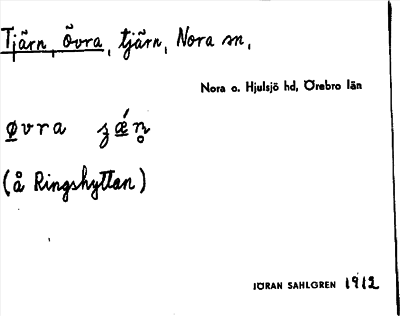 Tjärn, Övra, tjärn, Nora sn,
Nora o. Hjulsjö hd, Örebro län
øvra
(å Ringshyttan)
JÖRAN SAHLGREN 1912